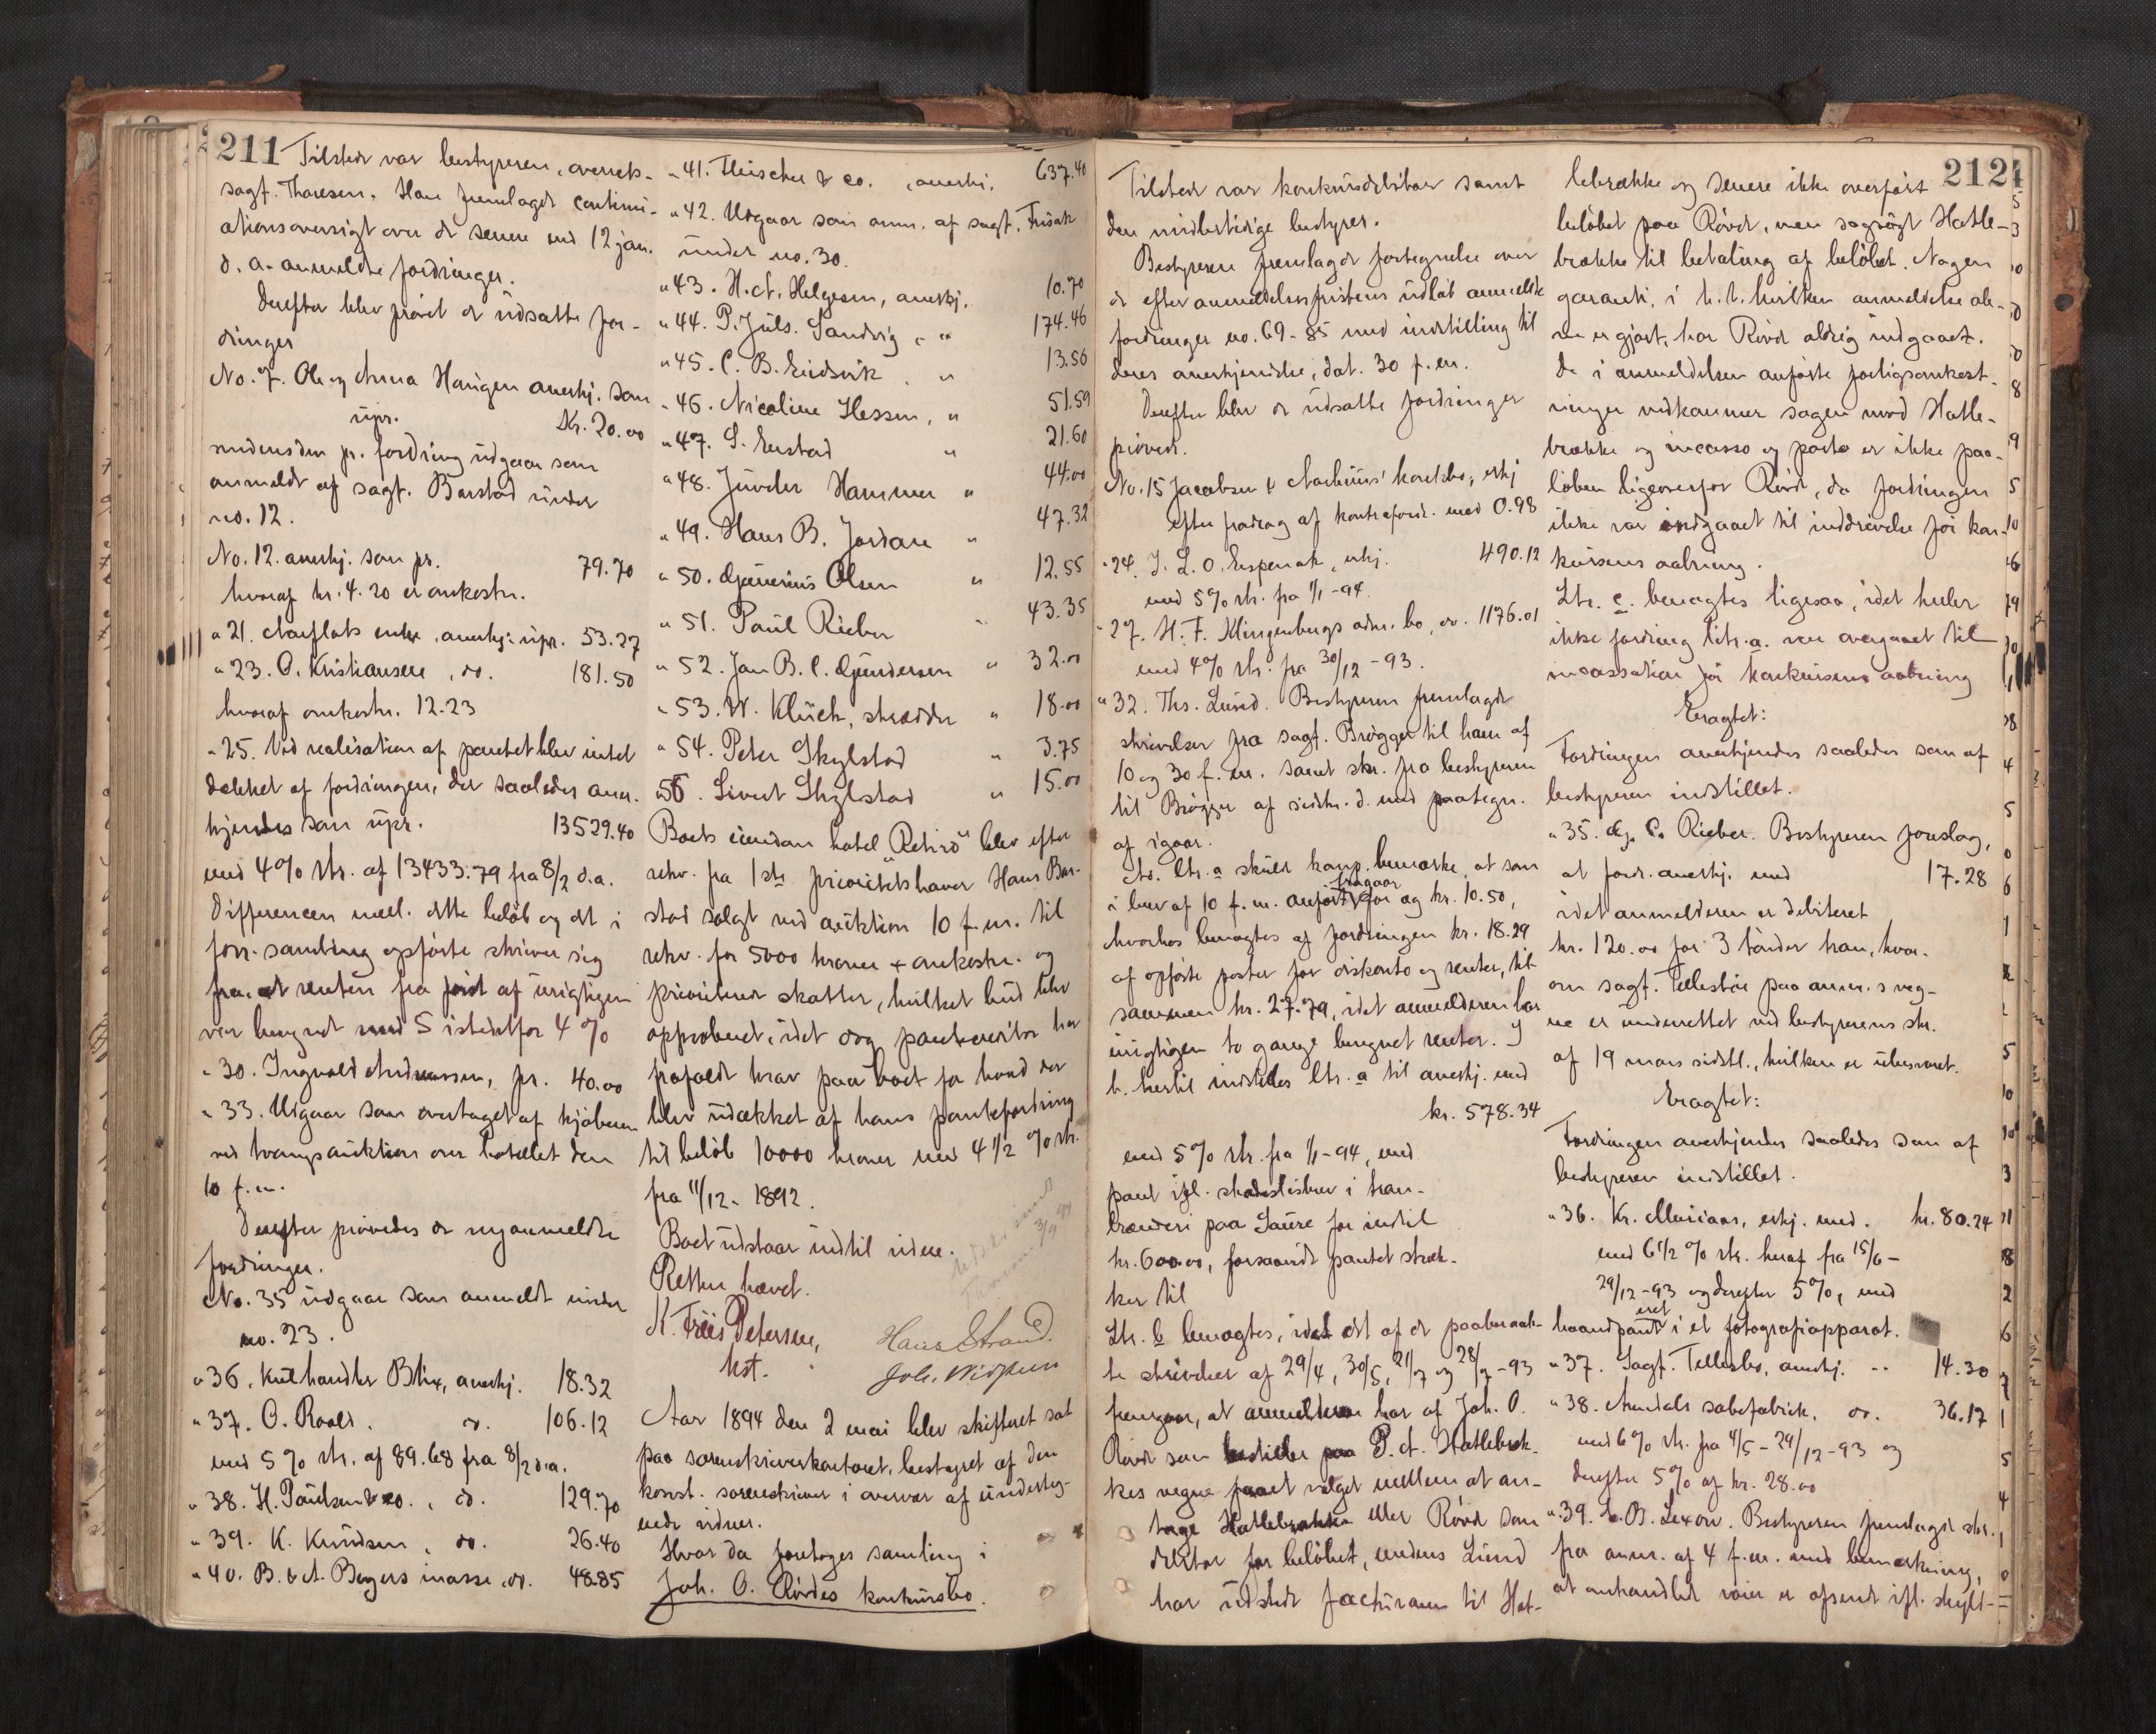 211
Tilstede var bestyreren, overrets-
sagf. Thoresen. Han fremlagde continu-
ationsoversigt over de senere end 12 jan.
d. a. anmeldte fordringer.
Derefter blev prøvet de udsatte for-
dringer
No. 7. Ole og Anna Haugen anerkj. som
upr. Kr. 20.00
medens den pr. fordring udgaar som
anmeldt af sagf. Barstad under
no. 12.
No. 12. anerkj. som pr. 79.70
hvoraf kr. 4.20 er omkostn.
" 21. Aarflots enke, anerkj. upr. 53.27
" 23. O. Kristiansen, do. 181.50
hvoraf omkostn. 12.23
" 25. Ved realisation af pantet blev intet
dækket af fordringen, der saaledes aner-
kjendes som upr. 13529.40
med 4% rtr. af 13433.79 fra 8/2 d.a.
Differencen mell. dette beløb og det i
forr. samling opførte skriver sig
fra, at renten fra først af urigtigen
var beregnet med 5 istedetfor 4%
" 30. Ingvald Andreassen, pr. 40.00
" 33. Udgaar som overtaget af kjøberen
ved tvangsauktion over hotellet den
10 f.m.
Derefter prøvedes de nyanmeldte
fordringer.
No. 35 udgaar som anmeldt under
no. 23.
" 36. Kulhandler Blix, anerkj. 18.32
" 37. O. Roald. do. 106.12
med 5% rtr. af 89.68 fra 8/2 d.a.
" 38. H. Poulsen & co., do. 129.70
" 39. K. Knudsen, do. 26.40
" 40. B. & A. Bøgers masse, do. 48.85
" 41. Fleischer & co., anerkj. 637.40
" 42. Udgaar som anm. af sagf. Frisak
under no. 30.
" 43. H. A. Helgesen, anerkj. 10.70
" 44. P. Juls. Sandvig, " 174.46
" 45. C. B. Eidsvik, " 13.56
" 46. Nicoline Hessen, " 51.59
" 47. S. Enstad " 21.60
" 48. Juveler Hammer " 44.00
" 49. Hans B. Jordan " 47.32
" 50. Gunerius Olsen " 12.55
" 51. Paul Rieber " 43.35
" 52. Jan B. C. Gundersen " 32.00
" 53. W. Klüch, skrædder " 18.00
" 54. Peter Skylstad " 3.75
" 56. Sivert Skylstad " 15.00
Boets eiendom hotel "Retiro" blev efter
rekv. fra 1ste prioritetshaver Hans Bar-
stad solgt ved auktion 10 f.m. til
rekv. for 5000 kroner + omkostn. og
prioriterede skatter, hvilket bud blev
approberet, idet dog pantkreditor har
frafaldt krav paa boet for hvad der
blev udækket af hans pantefordring
til beløb 10000 kroner med 4 1/2 % rtr.
fra 11/12-1892.
Boet udstaar indtil videre.
Retten hævet.
K. Friis Petersen,
kst.
Hans Strand.
Joh.
Aar 1894 den 2 mai blev skifteret sat
paa sorenskriverkontoret, bestyret af den
konst. sorenskriver i overvær af underteg-
nede vidner.
Hvor da foretoges samling i
Joh. O. Røvdes konkursbo.
212
Tilstede var konkursdebitor samt
den midlertidige bestyrer.
Bestyreren fremlagde fortegnelse over
de efter anmeldelsesfristens udløb anmeldte
fordringer no. 69-85 med indstilling til
deres anerkjendelse, dat. 30 f.m.
Derefter blev de udsatte fordringer
prøvede.
No. 15 Jacobsen & Aarhuus' konkbo, erkj
efter fradrag af kontrafordr. med 0.98
" 24. J. L. O. Espenak, erkj. 490.12
med 5% rtr. fra 1/1-94.
" 27. H. F. Klingenbergs adm. bo, do. 1176.01
med 4% rtr. fra 30/12-93.
" 32. Ths. Lund. Bestyreren fremlagde
skrivelser fra sagf. Brøgger til ham af
10 og 30 f.m. samt skr. fra bestyreren
til Brøgger af sidstn. d. med paategn.
af igaar.
Ad. ltr. a skulde komp. bemærke, at som
i brev af 10 f.m. anført fragaar kr. 10.50,
hvorhos benægtes af fordringen kr. 18.29
af opførte poster for diskonto og renter, til-
sammen kr. 27.79, idet anmelderen har
urigtigen to gange beregnet renter. I
h. hertil indstilles ltr. a til anerkj. med
kr. 578.34
med 5% rtr. fra 1/1-94, med
pant ifl. skadesløsbrev i tran-
brænderi paa Saure for indtil
kr. 600.00, forsaavidt pantet stræk-
ker til
Ltr. b benægtes, idet det af de paaberaab-
te skrivelser af 29/4, 30/5, 21/7 og 28/7-93
fremgaar, at anmelderen har af Joh. O.
Røvde som bestiller paa P. A. Hatlebræk-
kes vegne faaet valget mellem at an-
tage Hatlebrække eller Røvde som
debitor for beløbet, medens Lund
har udstedt facturaen til Hat-
lebrække og senere ikke overført
beløbet paa Røvde, men sagsøgt Hatle-
brække til betaling af beløbet. Nogen
garanti, i h. t. hvilken anmeldelse ale-
ne er gjort, har Røvde aldrig indgaaet.
De i anmeldelsen anførte forligsomkost-
ninger vedkommer sagen mod Hatle-
brække og incasso og porto er ikke paa-
løben ligeoverfor Røvde, da fordringen
ikke var indgaaet til inddrivelse før kon-
kursens aabning.
Ltr. c. benægtes ligesaa, idet heller
ikke fordring litr. a. var overgaaet til
incassation før konkursens aabning
Eragtet:
Fordringen anerkjendes saaledes som af
bestyreren indstillet.
" 35. G. C. Rieber. Bestyreren foreslog,
at fordr. anerkj. med 17.28
idet anmelderen er debiteret
kr. 120.00 for 3 tønder tran, hvor-
om sagf. Tellesbø paa anm.s veg-
ne er underrettet ved bestyrerens skr.
af 19 mars sidstl., hvilken er ubesvaret.
Eragtet:
Fordringen anerkjendes saaledes som af
bestyreren indstillet.
" 36. Kr. Musiaas, erkj. med. kr. 80.24
med 6 1/2 % rtr. heraf fra 15/6-
29/12-93 og derefter 5%, med
haandpanteret i et fotografiapparat.
" 37. Sagf. Tellesbø, anerkj. " 14.30
" 38. Arendals sabefabrick, do. 36.17
med 6% rtr. fra 4/5-29/12-93 og
derefter 5% af kr. 28.00
" 39. L. B. Lexow. Bestyreren fremlagde skr.
fra anm. af 4 f.m. med bemærkning,
at omhandlede varer er afsendt ifl. skylt-